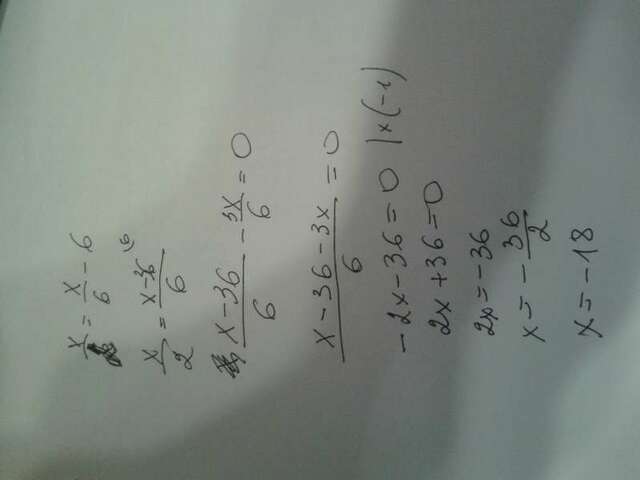 x/ = x/6 - 6
x/2 = x-36/6 (6
x-36/6 - 3x/6 = 0
x-36-3x/6 = 0
-2x-36=0 |x(-1)
2x+36=0
2x=-36
x=-36/2
x=-18